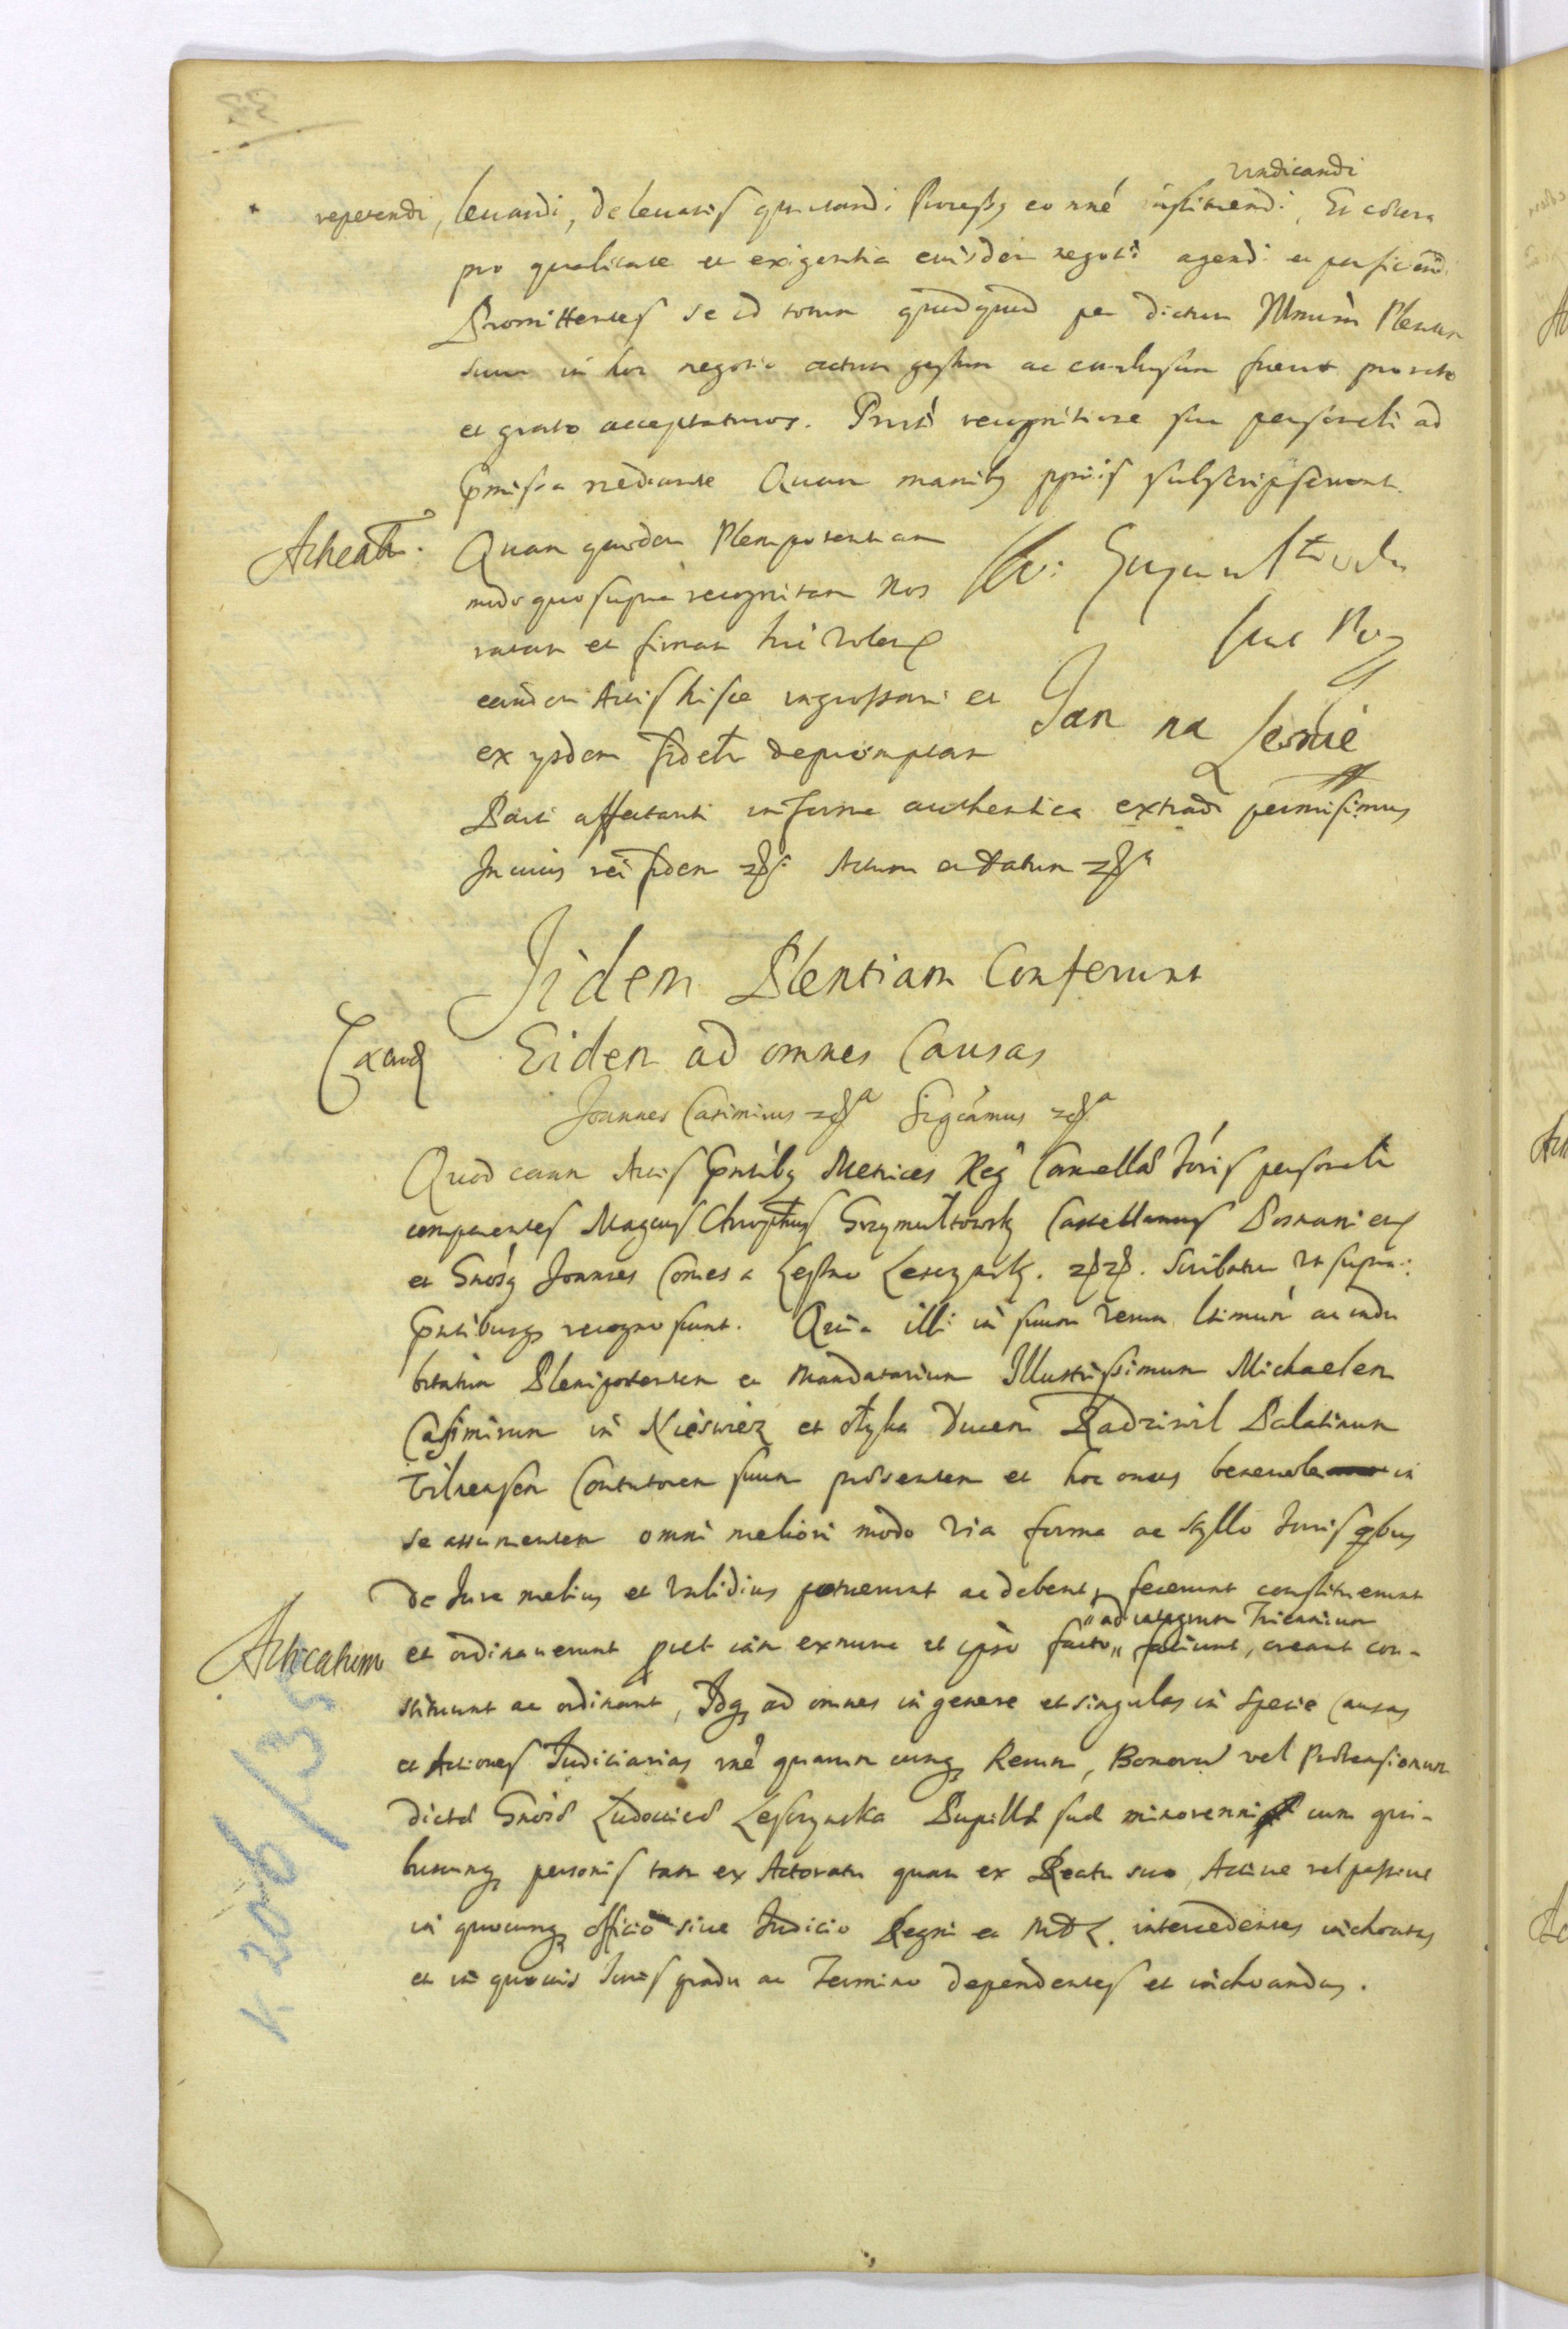 vindicandi
repetendi, leuandi, de leuatis quietandi Processusq eo nne instituendi, Et cetera
pro qualitate et exigentia eiusdem negotii agendi et perficiend
Promittentes se id totum quidquid per dictum Illmum Plenten
suum in hoc negotio actum gestum ac conclusum fuerit pro rato
et grato accepturos. Prnti recognitione sua personali ad
prmissa mediante Quam manibq pprijs subscripserunt.
Acticat. Quam quidem Plenipotentiam
modo quo supra recognitam Nos
ratam et firmam hri volentes
eandem Actis hisce ingrossari et
Jan na Lesnie
ex ysdem fidelr depromptam
Parti affectanti in forma authentica extradi permisimus
In cuius rei fidem Actum et datum
Iidem Plentiam Conferunt
Eidem ad omnes Causas
Joannes Casimirus Sigcamus
Quod coram Actis pntibq Metrices Regn Cancellae Nris personalr
comparentes Magcus Chrysthus Grzymultowsky Castellanus Posnanien
et Gnosq Joannes Comes a Leszno Lesczynsky. Scribatur vt supra:
pntibusq recognoscunt. Quia illi in suum verum ltimum ac indu
bitatum Plenipotentem et Mandatarium Illustrissimum Michaelem
Casimirum in Nieswiez et Olyka Ducem Radziwil Palatinum
Vilnensem Contutorem suum praesentem et hoc onus beneuole in
se assumentem omni meliori modo via forma ac stylo Juris qbus
de Jure melius et validius potuerunt ac debent, fecerunt constituerunt
"ad integrum Triennium
Acticatum et ordinauerunt put iam ex nunc et ipso facto" faciunt, creant con-
stituunt ac ordinant, Idq ad omnes in genere et singulas in specie Causas
et Actiones Judiciarias rne quarumcunq Rerum, Bonorum vel Praetensionum
dictae Gnosae Ludouicae Lesczynska Pupillae suae minorennis cum qui-
buscunq personis tam ex Actoratu quam ex Reatu suo, Actiue vel passiue
in quocunq officio siue Judicio Regni et MDL. intercedentes inchoatas
et in quouis Juris gradu ac Termino dependentes et inchoandas.
K 206/135